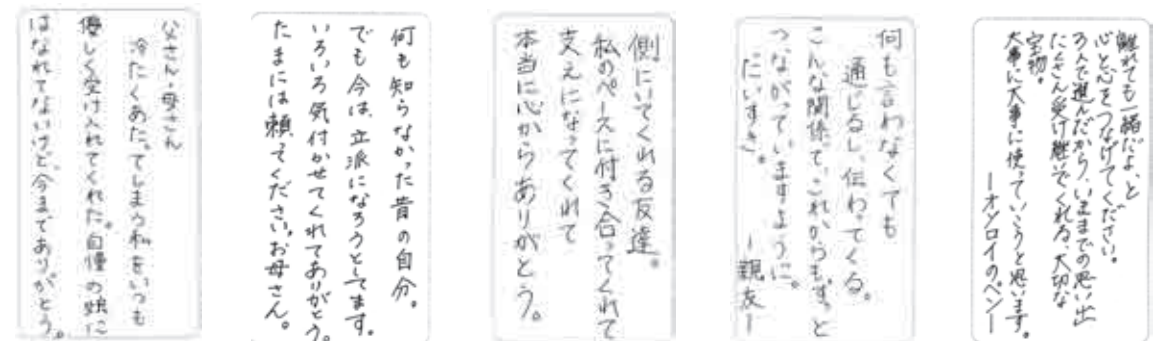 父さん・母さん
冷たくあたってしまう私をいつも
優しく受け入れてくれた。自慢の娘に
はなれてないけど、今までありがとう。
何も知らなかった昔の自分。
でも今は、立派になろうとしてます。
いろいろ気付かせてくれてありがとう。
たまには頼ってください。お母さん。
側にいてくれる友達。
私のペースに付き合ってくれて
支えになってくれて
本当に心からありがとう。
何も言わなくても
通じるし、伝わってくる。
こんな関係で、これからもずっと
つながっていますように。
だいすき。
ー親友ー
離れても一緒だよ、と
心と心をつなげてください。
3人で選んだから、いままでの思い出
たくさん受け継いでくれる、大切な
宝物。
大事に大事に使っていこうと思います。
ーオソロイのペンー